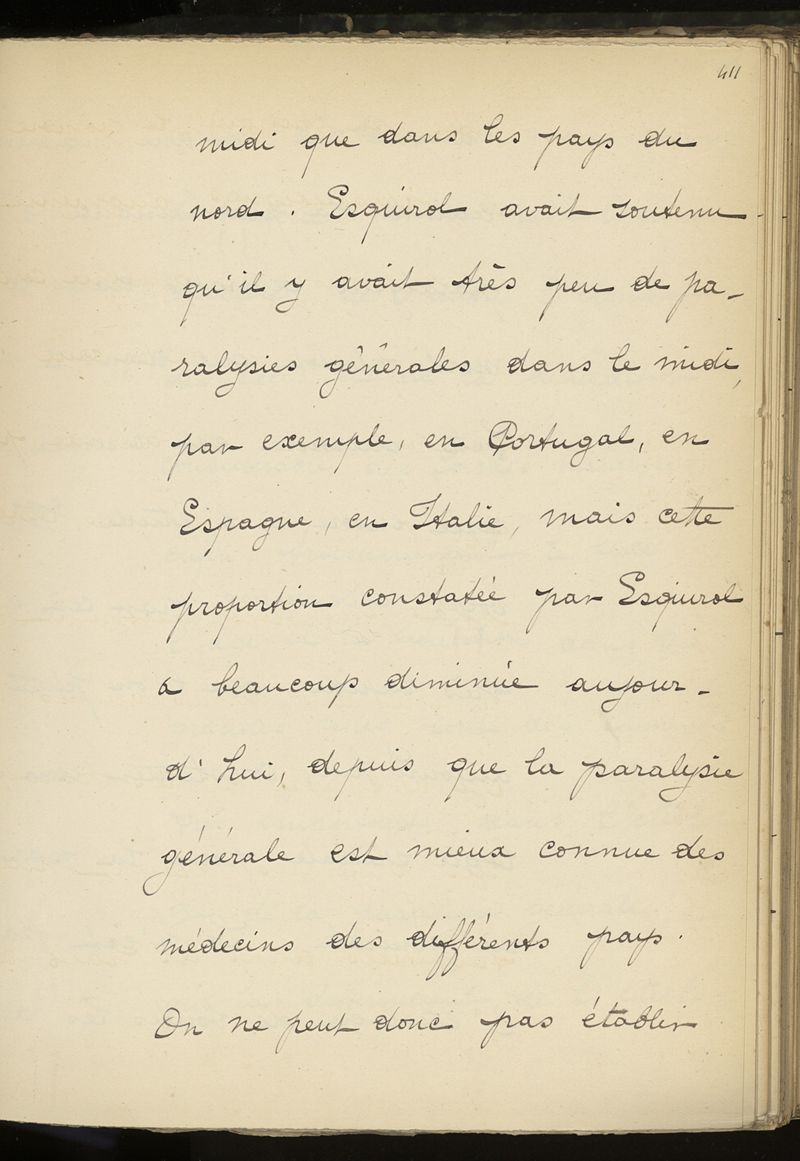 411
midi que dans les pays du
nord. Esquirol avait soutenu
qu'il y avait très peu de pa-
ralysies générales dans le midi,
par exemple, en Portugal, en
Espagne, en Italie, mais cette
proportion constatée par Esquirol
a beaucoup diminuée aujour-
d'hui, depuis que la paralysie
générale est mieux connue des
médecins des différents pays.
On ne peut donc pas établir